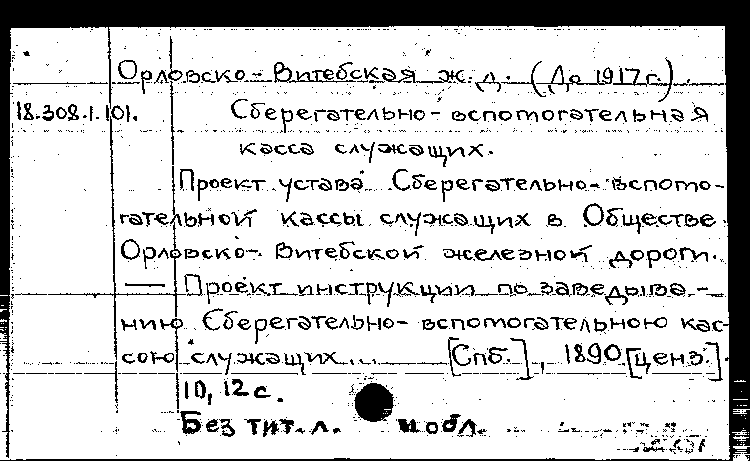 Орловско-Витебская ж.д. (До 1917 г.).
18.308.1.101. Сберегательно-вспомогательная
касса служащих.
Проект устава Сберегательно-вспомо-
гательной кассы служащих в Обществе
Орловско-Витебской железной дороги.
— Проект инструкции по заведыва-
нию Сберегательно-вспомогательною кас-
сою служащих... [Спб.], 1890 [ценз.].
10, 12 с.
Без тит. л. и обл.